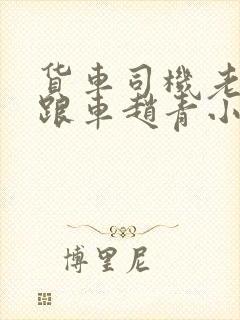 货车司機老
跟車趙青小
博里尼